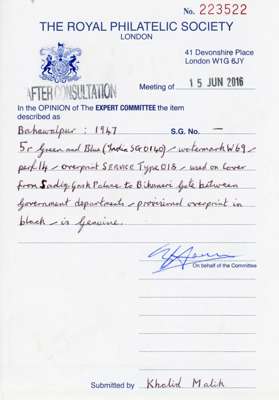 No. 223522
THE ROYAL PHILATELIC SOCIETY
LONDON
41 Devonshire Place
London W1G 6JY
AFTER CONSULTATION
Meeting of 15 JUN 2016
In the OPINION of The EXPERT COMMITTEE the item
described as
Bahawalpur : 1947 S.G. No. —
5r Green and Blue (India SG O140) - watermark W69 -
perf 14 - overprint SERVICE Type O18 - used on cover
from Sadiq Garh Palace to Bikaneri Gate between
Government departments - provisional overprint in
black - is Genuine.
On behalf of the Committee
Submitted by Khalid Malik